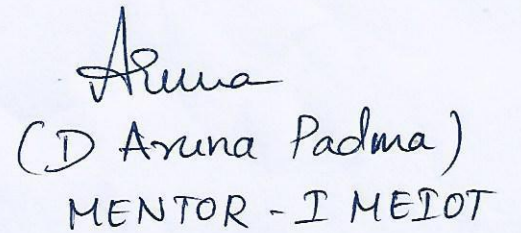 Aruna
(D Aruna Padma)
MENTOR - I MEIOT